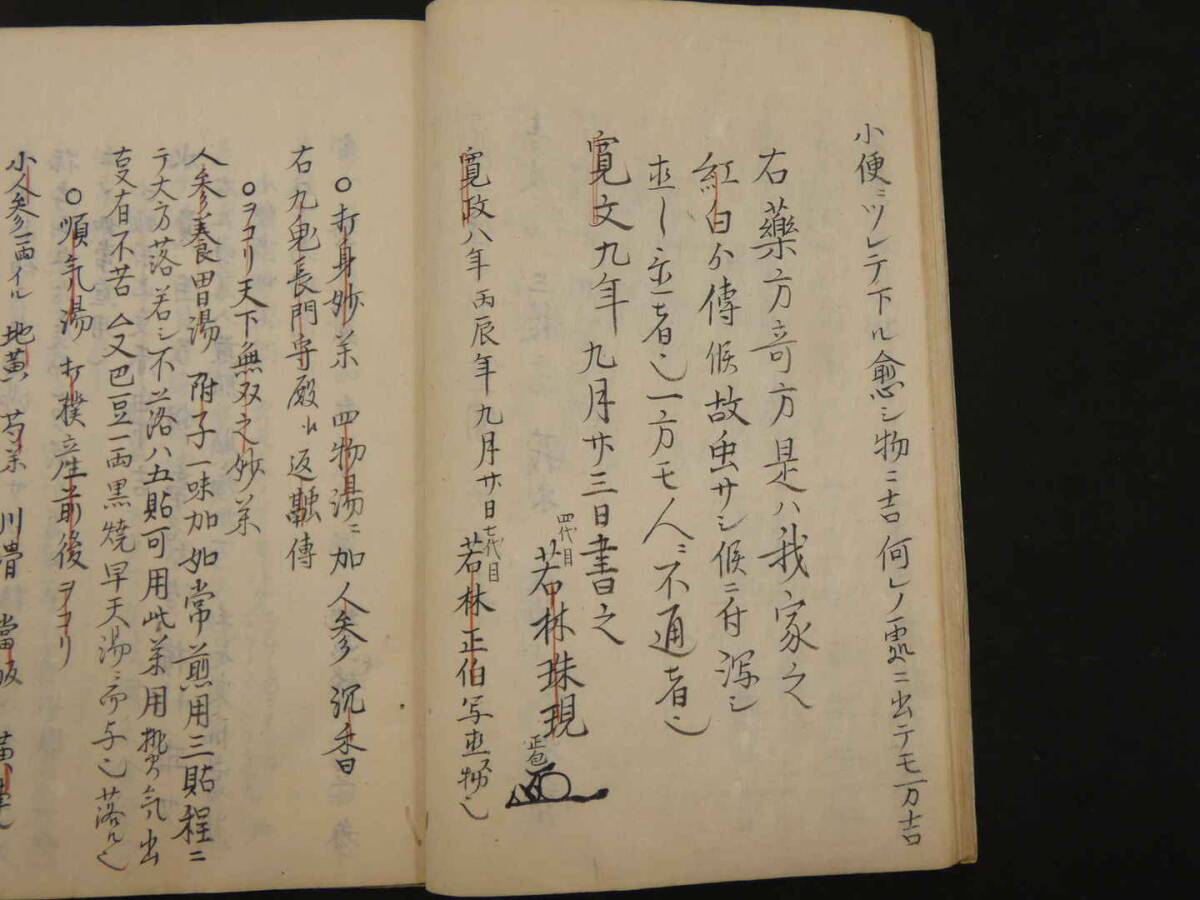 小便ニツレテ下ル愈シ物ニ吉何レノ霊ニ出テモ万吉
右藥方竒方是ハ我家之
紅白分傳候故虫サシ候ニ付瀉シ
者也一方モ人ニ不通者也
寛文九年九月廿三日書之
四代目
若林珠現
正包
寛政八年丙辰年九月廿日
七代目
若林正伯写
○打身妙薬 四物湯ニ加人参沉香
右九鬼長門守殿ゟ返融傳
○ヲコリ天下無双之妙薬
人参養胃湯 附子一味加如常煎用三貼程ニ
テ大方落若シ不落ハ五貼可用此薬用熱気出
有不苦 △又巴豆一両黒焼早天湯ニ而与也落ル也
○順気湯 打撲産前後ヲコリ
小人参一両イル 地黄 芎薬 川骨 當皈